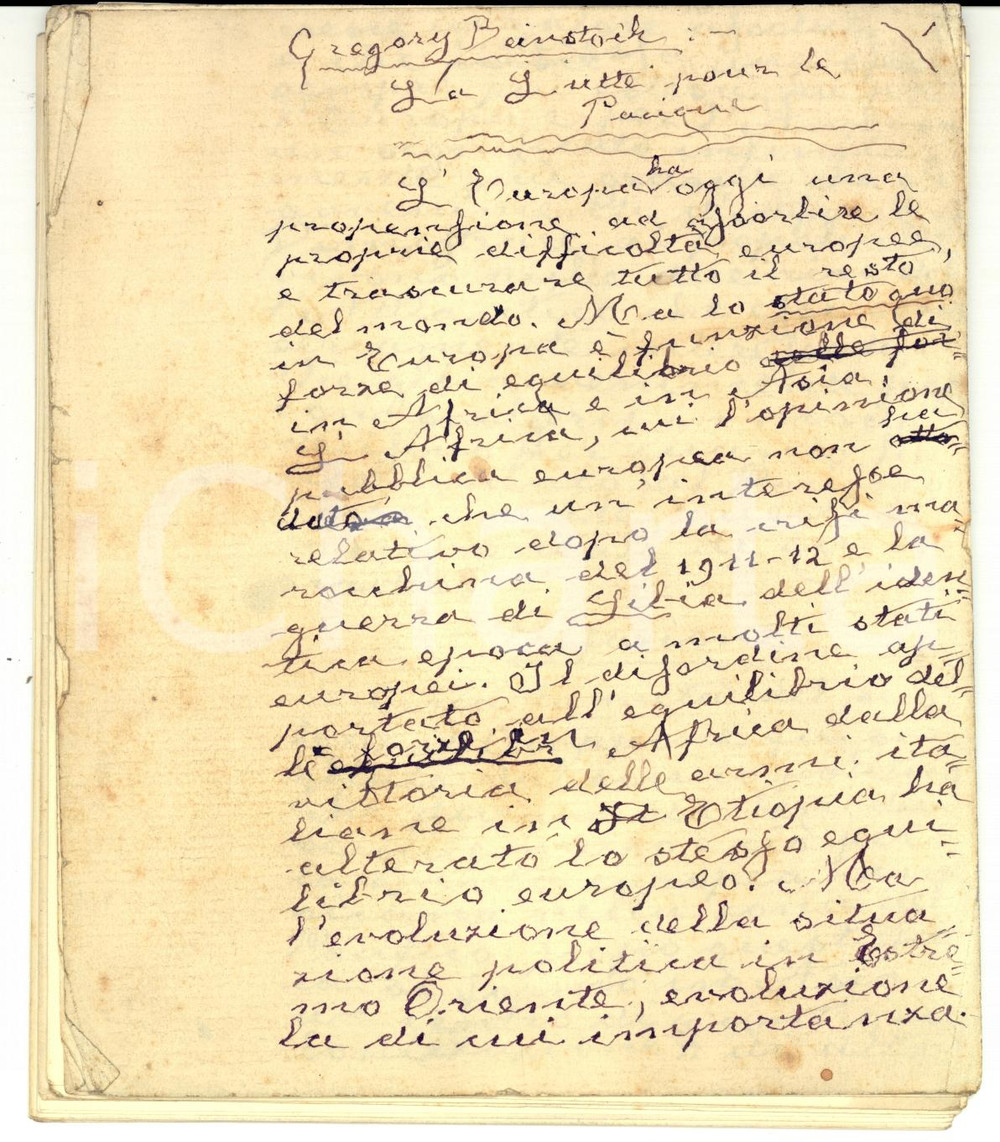 Gregory Beinstock :-
La Lutte pour le
Pacique
L'Europa ha oggi una
propensione ad assorbire le
proprie difficoltà europee,
e trascurare tutto il resto
del mondo. Ma lo stato quo
in Europa è funzione di
forze di equilibrio delle for=
in Africa e in Asia.
L'Africa, cui l'opinione
pubblica europea non ha
dato che un'interesse
relativo dopo la crisi ma=
rocchina del 1911-12 e la
guerra di Libia dell'iden=
tica epoca a molti stati
europei. Il disordine ap=
portato all'equilibrio del=
le forze in Africa dalla
vittoria delle armi ita=
liane in Etiopia ha
alterato lo stesso equi=
librio europeo. Ma
l'evoluzione della situa=
zione politica in Estre=
mo Oriente, evoluzione
la di cui importanza